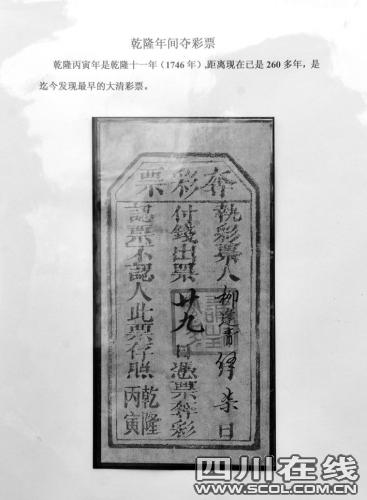 乾隆年间夺彩票
乾隆丙寅年是乾隆十一年（1746 年）,距离现在已是 260 多年，是
迄今发现最早的大清彩票。
奪彩票
執彩票人
日
付錢出票廿九日憑票奪彩
認票不認人此票存照
乾隆
丙寅
四川在线
WWW.SCOL.COM.CN